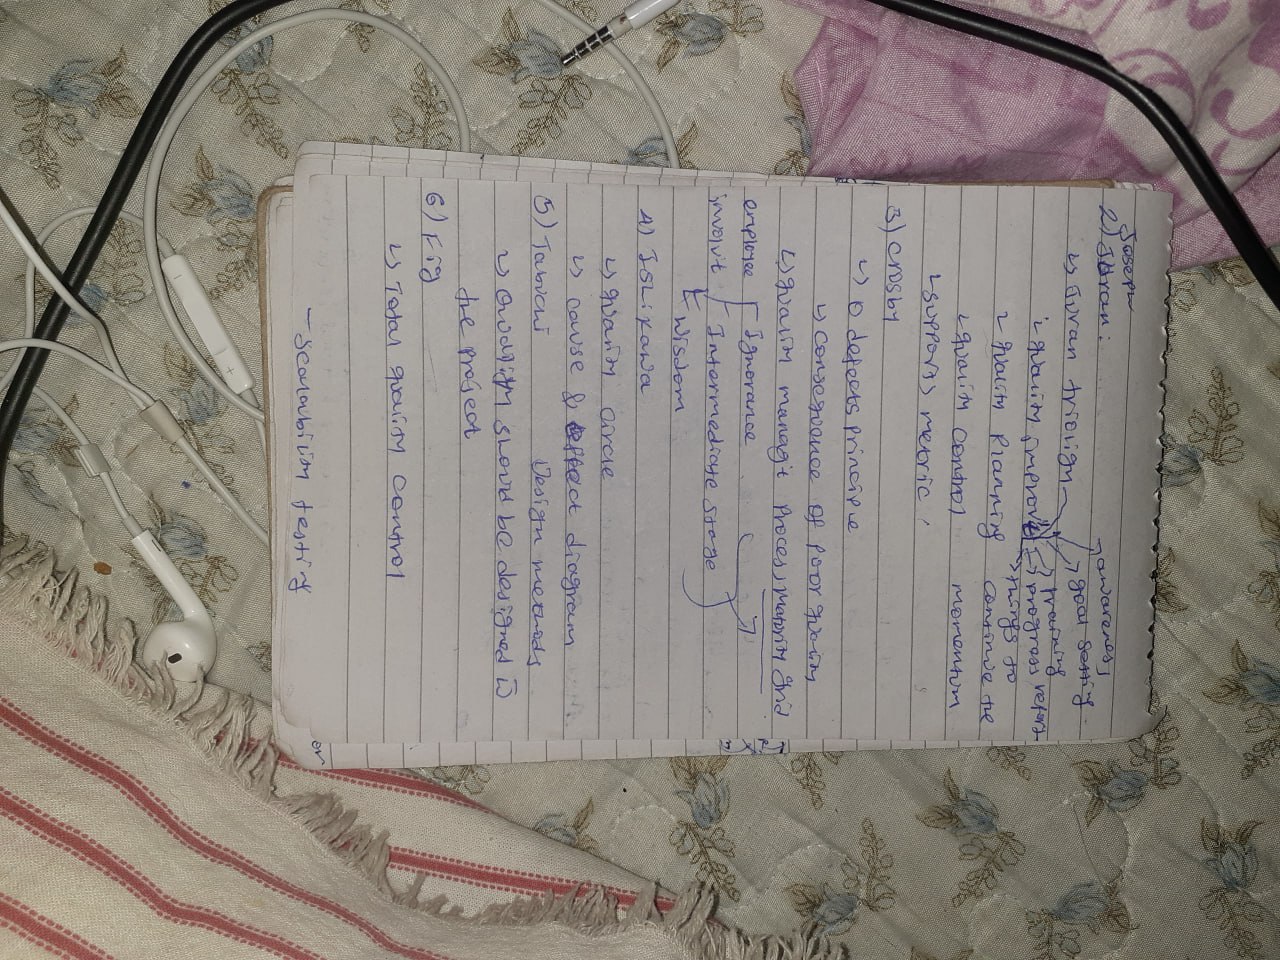 Joseph
2) Juran:
↳ Juran triolign → awareness
→ goal setting
↳ quality improv → training
→ progress return
↳ quality planning → things to
continue the
↳ quality control momentum
↳ supports metric.
3) crosby
↳ 0 defects principle
↳ consequance of poor quality
↳ quality managt process, maturity grid
employee Ignorance
involvt Intermediate stage
Wisdom
4) Ishikawa
↳ quality circle
↳ cause & effect diagram
5) Taguchi Design methods
↳ Quality should be designed in
the project
6) Fig
↳ Total quality control
- Scalability testing